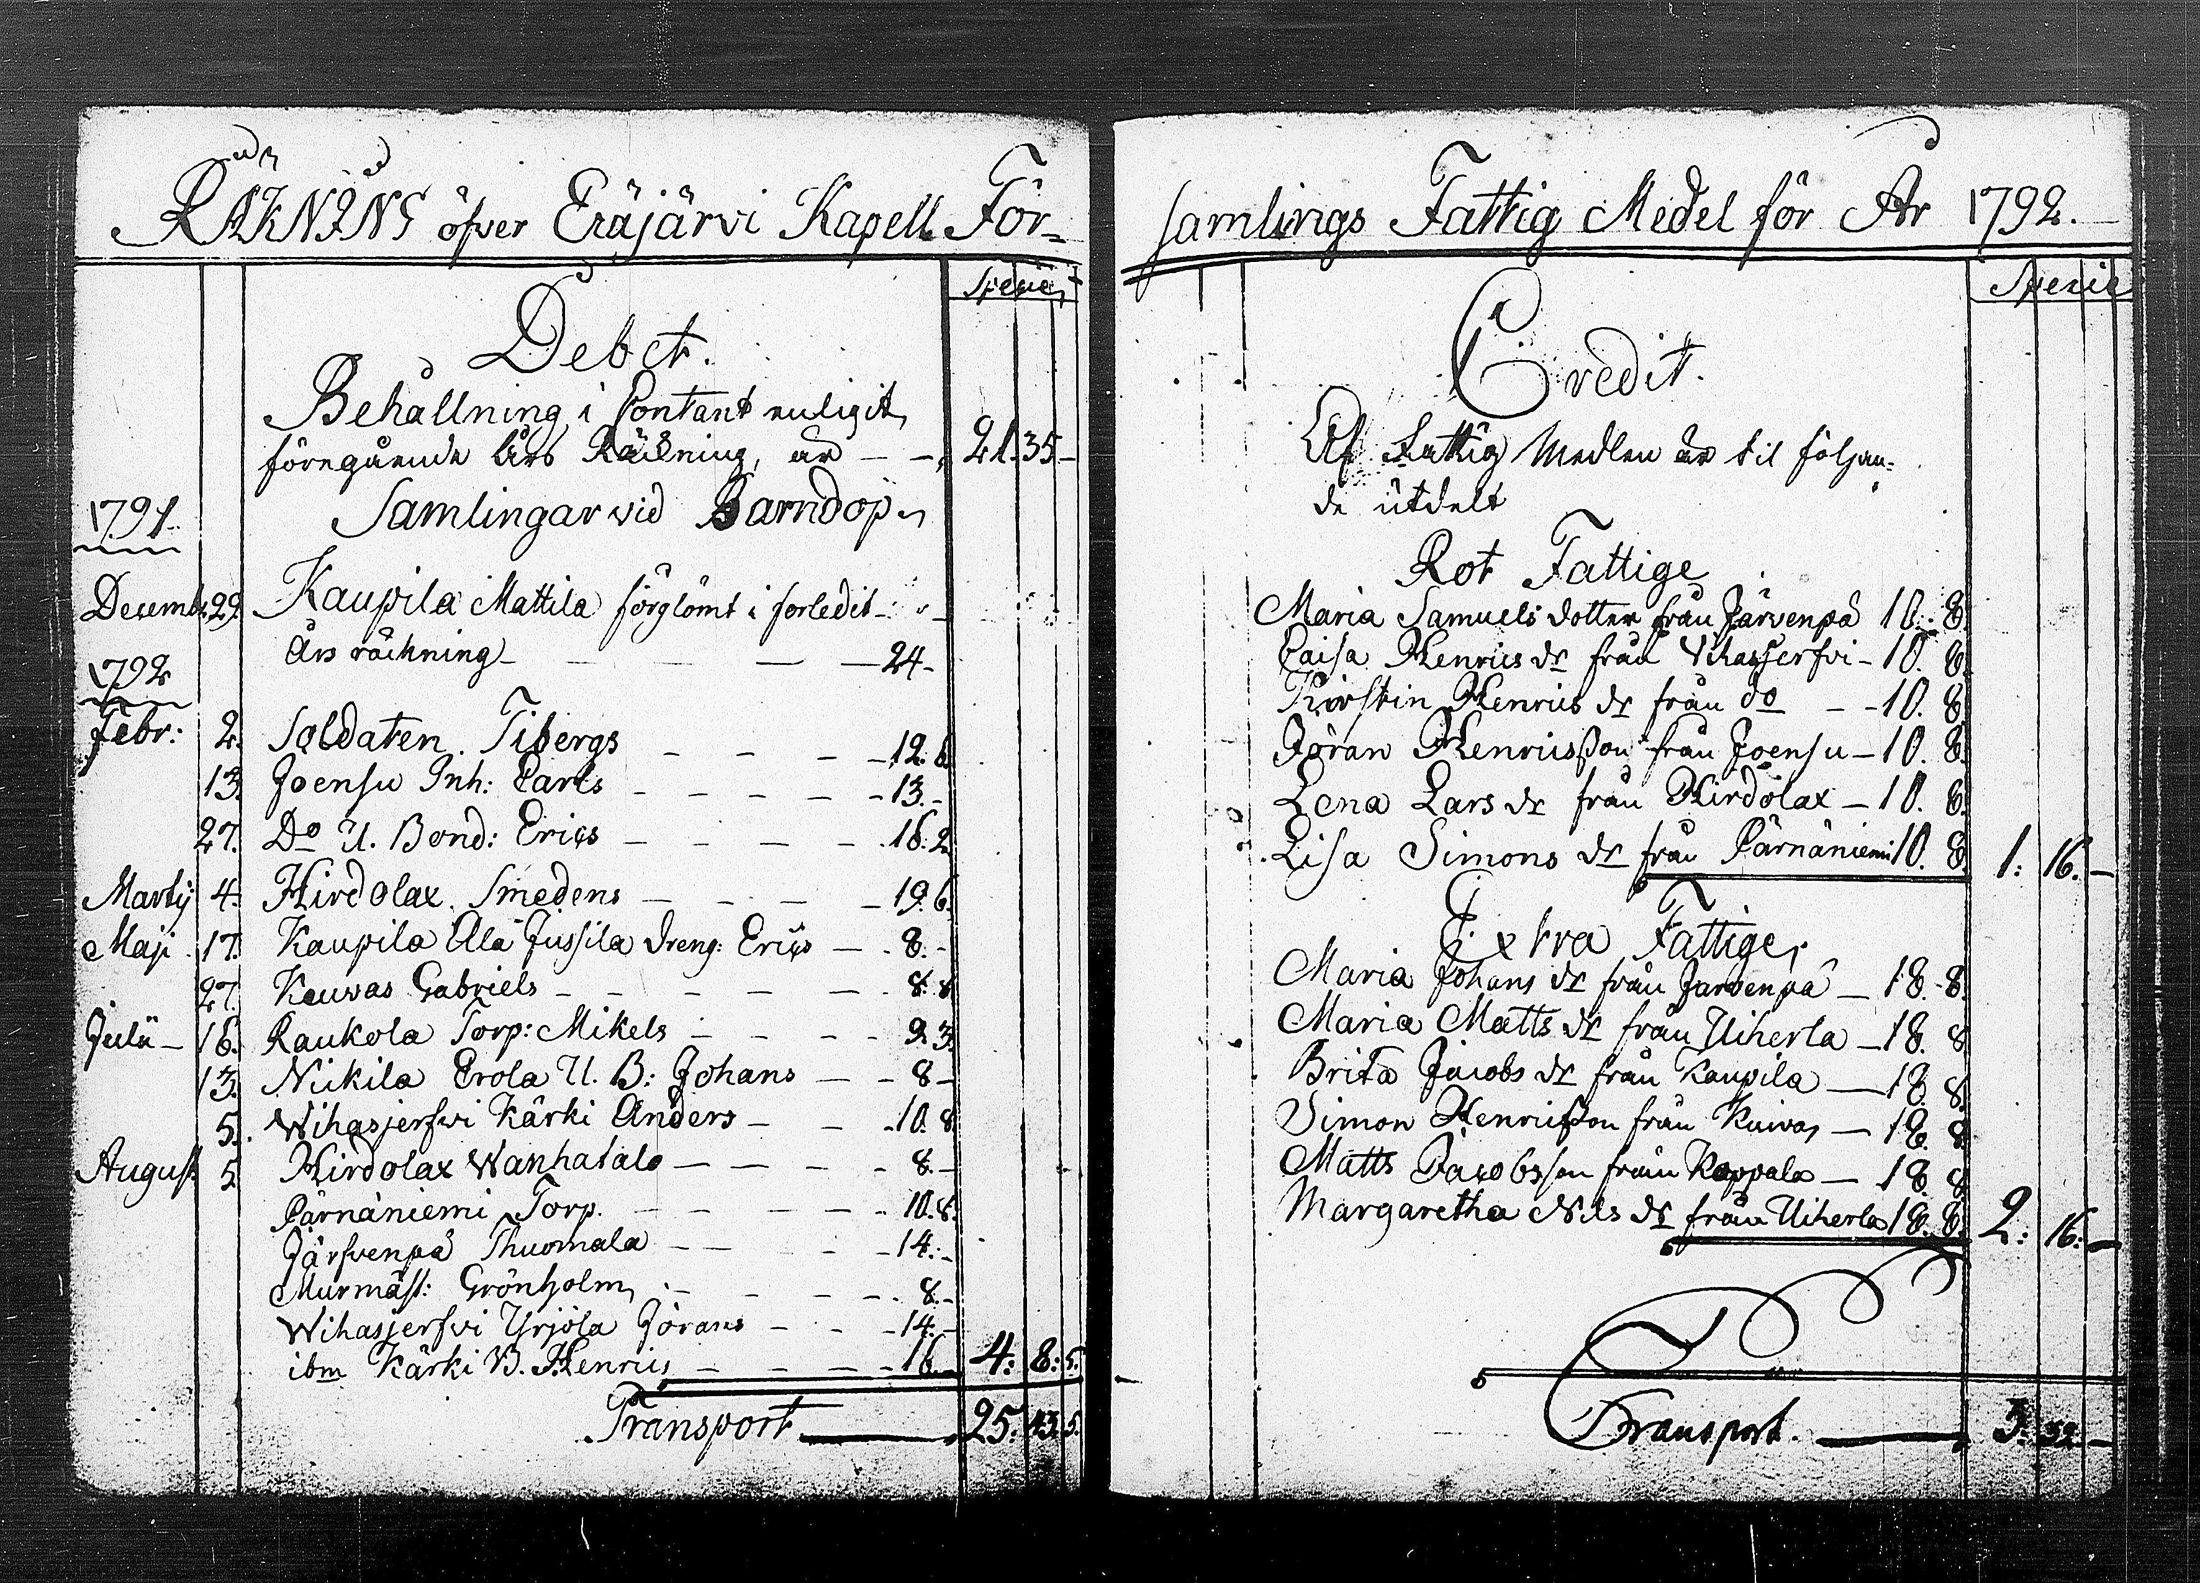 RÄKNING öfver Eräjärvi Kapell För-
Specie
Debet.
Behållning i Contant enligit
föregående Års Räkning, är 21. 35 -
1791
Samlingar vid Barndop
Decemb: 29. Kaupila Mattila förglömt i forledit
Års räckning - 24 -
1792
Febr: 2. Soldaten Tibergs - 12. 6.
13. Joensu Inh: Carls - 13. -
27. Do U. Bond: Erics - 16. 2
Martij 4. Hirdolax Smedens - 19. 6.
Maji 17. Kaupila Ala Jussila dreng: Erics - 8. -
27. Kauvas Gabriels - 8. 8
Julii - 16. Raukola Torp: Mikels - 9. 3.
13. Nickila Erola U. B: Johans - 8 -
5. Wihasjerfvi Kärki Anders - 10. 8
August 5 Hirdolax Wanhatalo - 8. -
Pärnäniemi Torp. - 10. 8.
Järfvenpä Thuomala - 14. -
Murmäst: Grönholm - 8. -
Wihasjerfvi Yrjöla Görans - 14. -
ibm Kärki B. Henrics - 16. - 4: 8: 5.
Transport 25. 43. 5.
samlings Fattig Medel för År 1792.
Specie
Credit.
Af Fattig Medlen är til följan-
de utdelt
Rot Fattige
Maria Samuels dotter från Järvenpä 10. 8
Caisa Henrics dr från Vihasjerfvi - 10. 8
Kirstin Henrics dr från do - 10. 8
Göran Henricsson från Joensu - 10. 8.
Lena Lars dr från Hirdolax - 10. 8.
Lisa Simons dr från Pärnäniemi 10. 8. 1: 16. -
Extra Fattige
Maria Johans dr från Jarvenpä - 18. 8.
Maria Matts dr från Uiherla - 18. 8
Brita Jacobs dr från Kaupila - 18. 8.
Simon Henricsson från Kuivas - 18. 8
Matts Jacobsson från Koppala - 18. 8
Margaretha Nils dr från Uiherla 18. 8. 2: 16: -
Transport. 3: 32 -